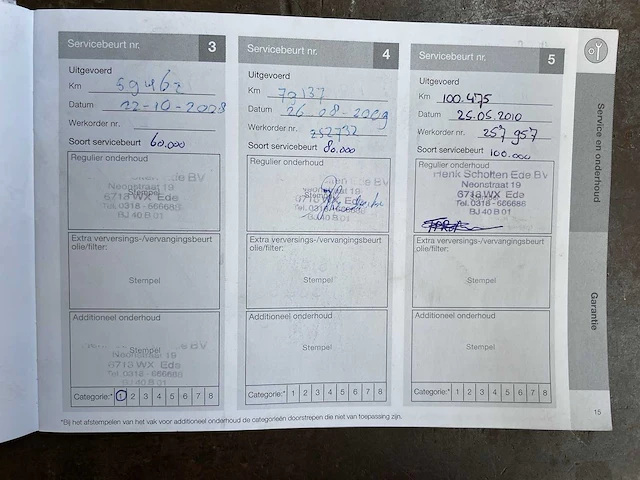 Servicebeurt nr. 3
Uitgevoerd
Km 59462
Datum 22-10-2008
Werkorder nr.
Soort servicebeurt 60.000
Regulier onderhoud
Stempel
Neonstraat 19
6713 WX Ede
Tel. 0318 - 656685
BJ 40 B 01
Extra verversings-/vervangingsbeurt
olie/filter:
Stempel
Additioneel onderhoud
Stempel
Neonstraat 19
6713 WX Ede
Tel. 0318 - 656685
BJ 40 B 01
Categorie:* 1 2 3 4 5 6 7 8
Servicebeurt nr. 4
Uitgevoerd
Km 79137
Datum 26-08-2009
Werkorder nr. 252732
Soort servicebeurt 80.000
Regulier onderhoud
Stempel
6713 WX Ede
BJ 40 B 01
Extra verversings-/vervangingsbeurt
olie/filter:
Stempel
Additioneel onderhoud
Stempel
Categorie:* 1 2 3 4 5 6 7 8
Servicebeurt nr. 5
Uitgevoerd
Km 100.475
Datum 25.05.2010
Werkorder nr. 257957
Soort servicebeurt 100.000
Regulier onderhoud
Henk Scholten Ede BV
Neonstraat 19
6713 WX Ede
Tel. 0318 - 656685
BJ 40 B 01
Extra verversings-/vervangingsbeurt
olie/filter:
Stempel
Additioneel onderhoud
Stempel
Categorie:* 1 2 3 4 5 6 7 8
Service en onderhoud
Garantie
*Bij het afstempelen van het vak voor additioneel onderhoud de categorieën doorstrepen die niet van toepassing zijn.
15